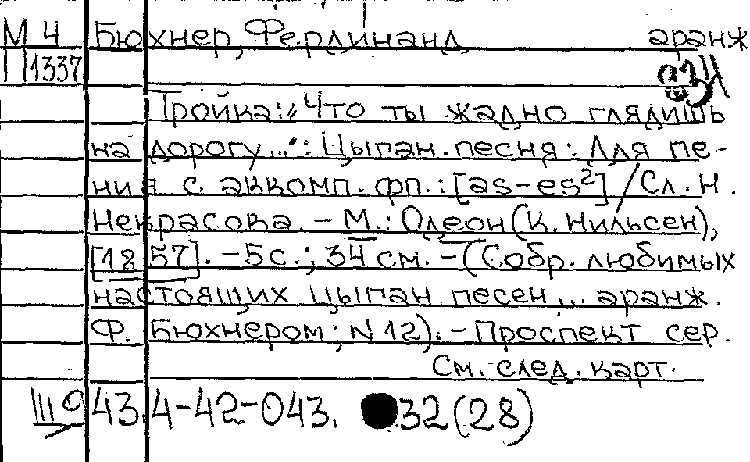 М 4 Бюхнер, Фердинанд аранж
1337
Тройка: „Что ты жадно глядишь
на дорогу...": Цыган. песня: Для пе-
ния с аккомп. фп.: [as-es²] / Сл. Н.
Некрасова. - М.: Одеон (К. Нильсен),
[1857]. - 5 с.; 34 см. - (Собр. любимых
настоящих цыган песен... аранж.
Ф. Бюхнером; N 12). - Проспект сер.
См. след. карт.
43.4-42-043. 32 (28)